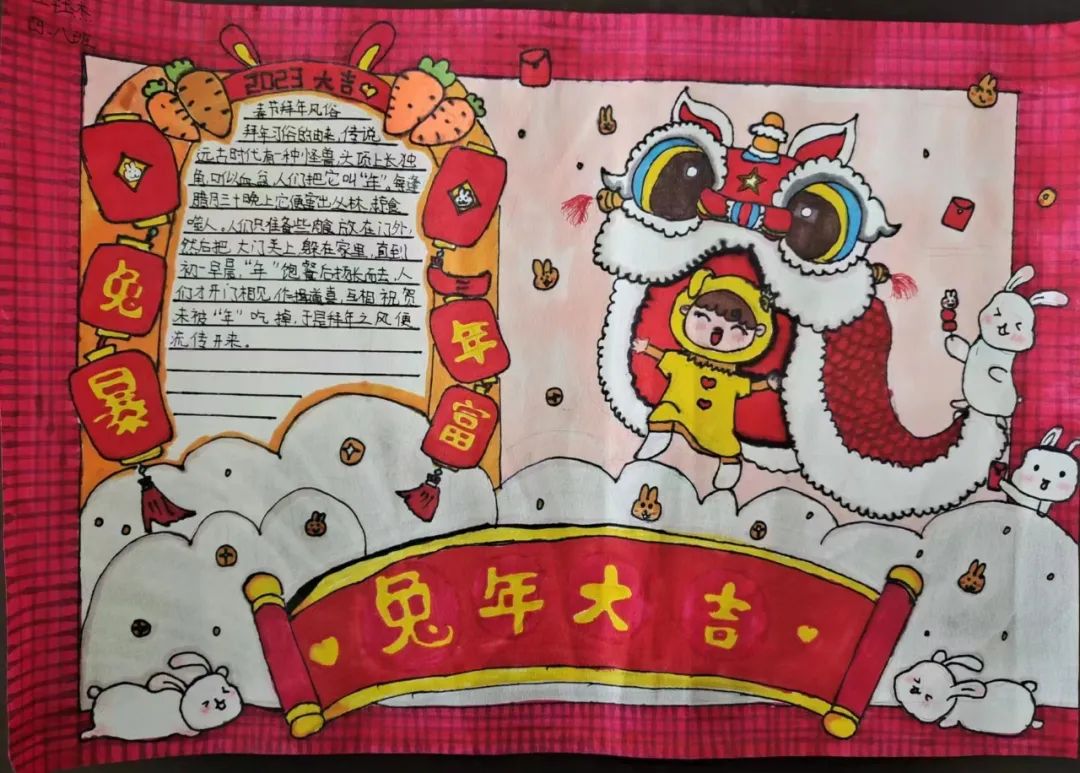 四.八班
2023大吉
春节拜年风俗
拜年习俗的由来,传说
远古时代有一种怪兽,头顶上长独
角,口似血盆,人们把它叫“年”。每逢
腊月三十晚上它便窜出丛林,掠食
噬人。人们只准备些肉食放在门外,
然后把大门关上,躲在家里,直到
初一早晨,“年”饱餐后扬长而去,人
们才开门相见,作揖道喜,互相祝贺
未被“年”吃掉,于是拜年之风便
流传开来。
兔
年
暴
富
兔年大吉